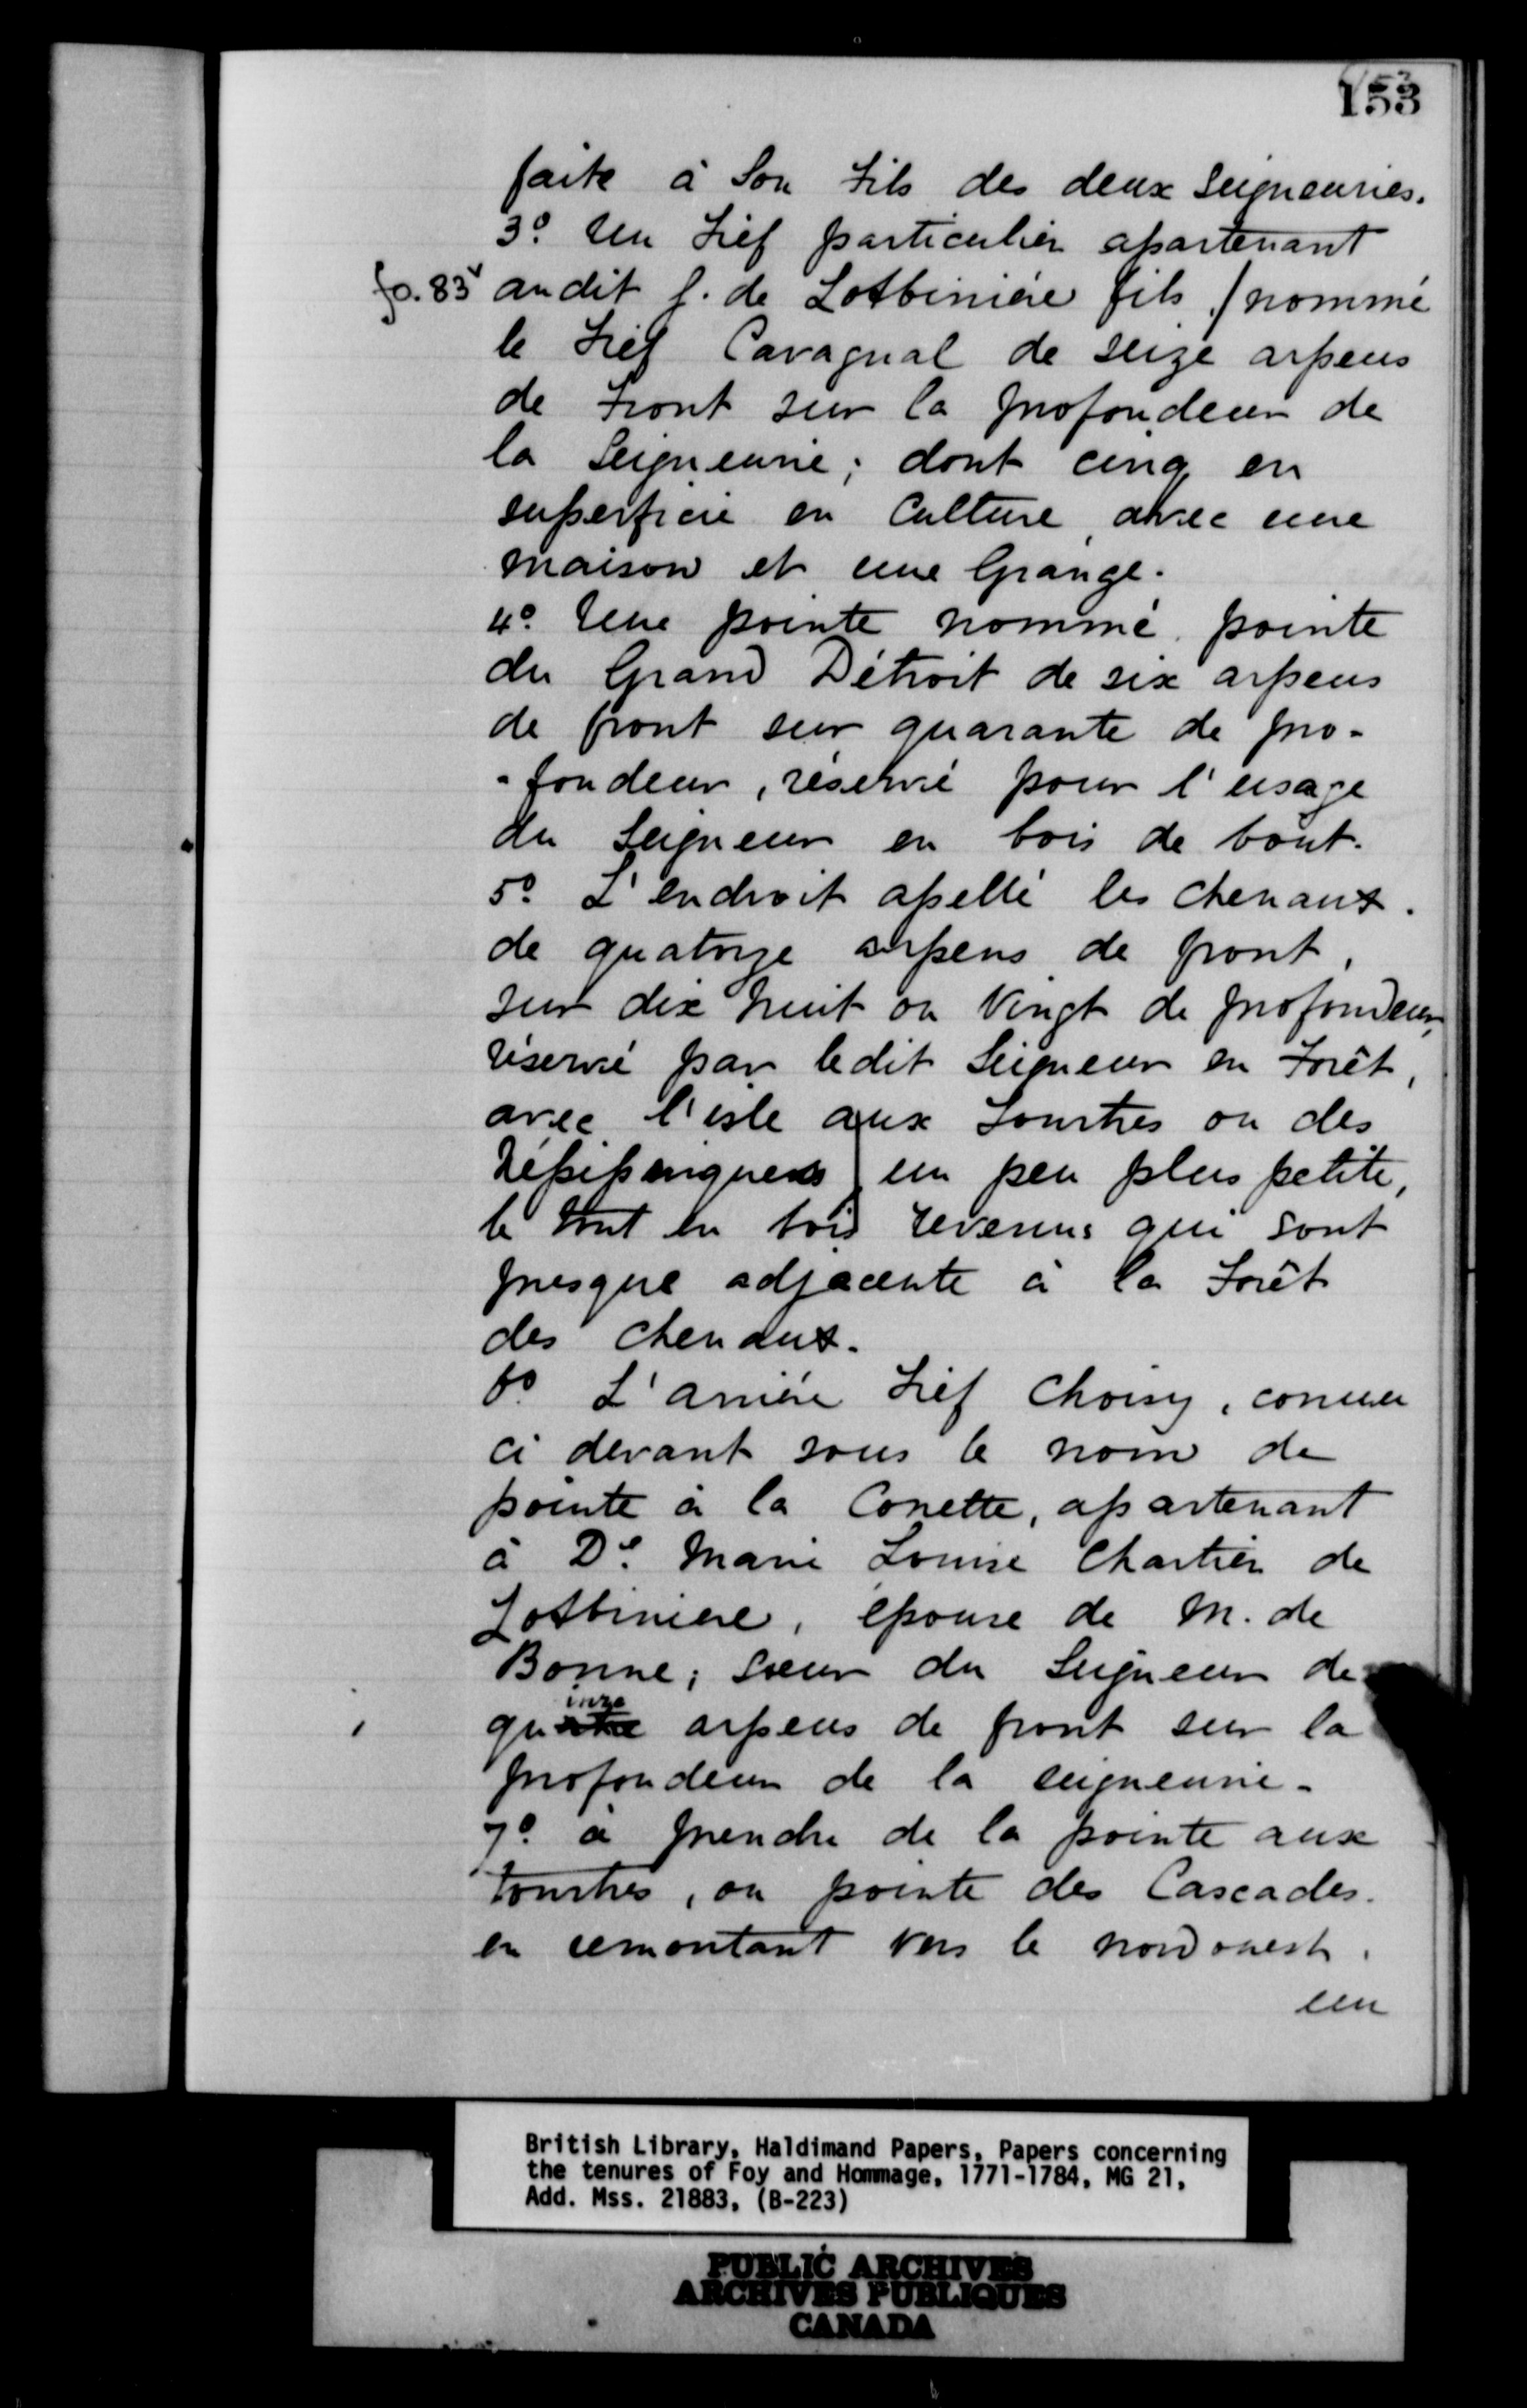 153
faite à Son Fils des deux Seigneuries.
3º. Un Fief particulier apartenant
fo. 83v audit S. de Lotbiniére fils / nommé
le Fief Cavagnal de seize arpens
de Front sur la profondeur de
la Seigneurie; dont cinq en
superficie en Culture, avec une
maison et une Grange.
4º. Une pointe nommé pointe
du Grand Détroit de six arpens
de front sur quarante de pro-
-fondeur, réservé pour l'usage
du Seigneur en bois de bout.
5º L'endroit apellé les chenaux.
de quatorze arpens de front,
sur dix huit ou Vingt de profondeur,
réservé par ledit Seigneur en Forêt,
avec l'isle aux Tourtres ou des
un peu plus petite,
le tout en bois revenus qui sont
presque adjacente à la Forêt
des chenaux.
6º L'arriére Fief Choisy, connu
ci devant sous le nom de
pointe à la Conette, apartenant
à De. Marie Louise Chartier de
Lotbiniere, épouse de M. de
Bonne; sœur du Seigneur de
inze
quatre arpens de front sur la
profondeur de la seigneurie.
7º. à prendre de la pointe aux
Tourtres, ou pointe des Cascades.
en remontant vers le nord ouest.
un
British Library, Haldimand Papers, Papers concerning
the tenures of Foy and Hommage, 1771-1784, MG 21,
Add. Mss. 21883, (B-223)
PUBLIC ARCHIVES
ARCHIVES PUBLIQUES
CANADA